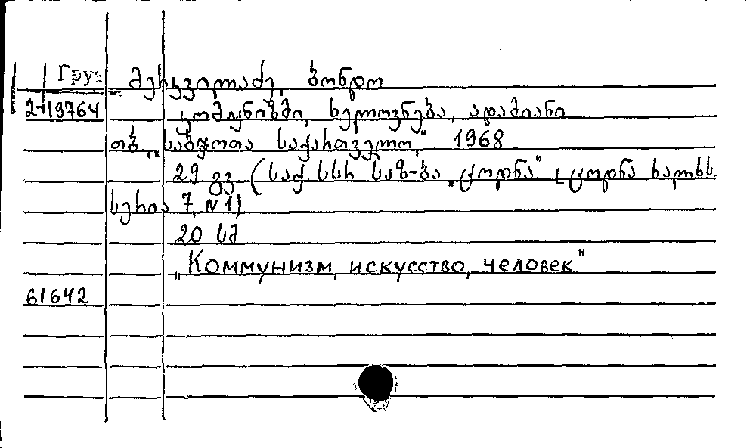 Груз მესხვილაძე, ბონდო
2-19764 კომუნიზმი, ხელოვნება, ადამიანი
თბ., „საბჭოთა საქართველო," 1968
29 გვ. (საქ. სსრ საზ-ბა „ცოდნა". ცოდნა ხალხს.
სერია 7, №1)
20 სმ
„Коммунизм, искусство, человек"
61642